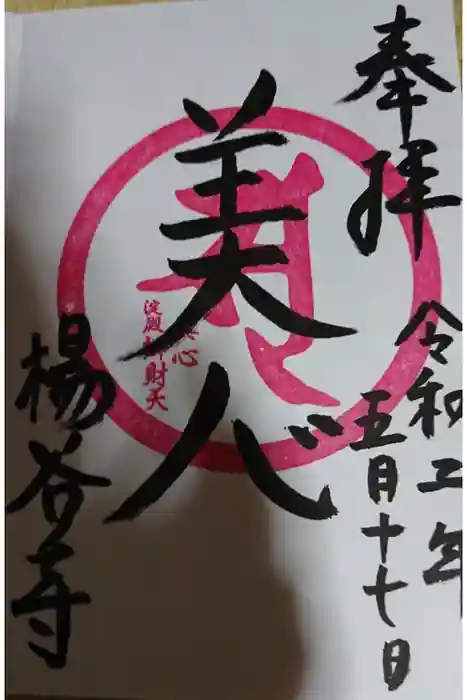 奉拝
令和二年
五月十七日
美心
淀殿弁財天
楊谷寺